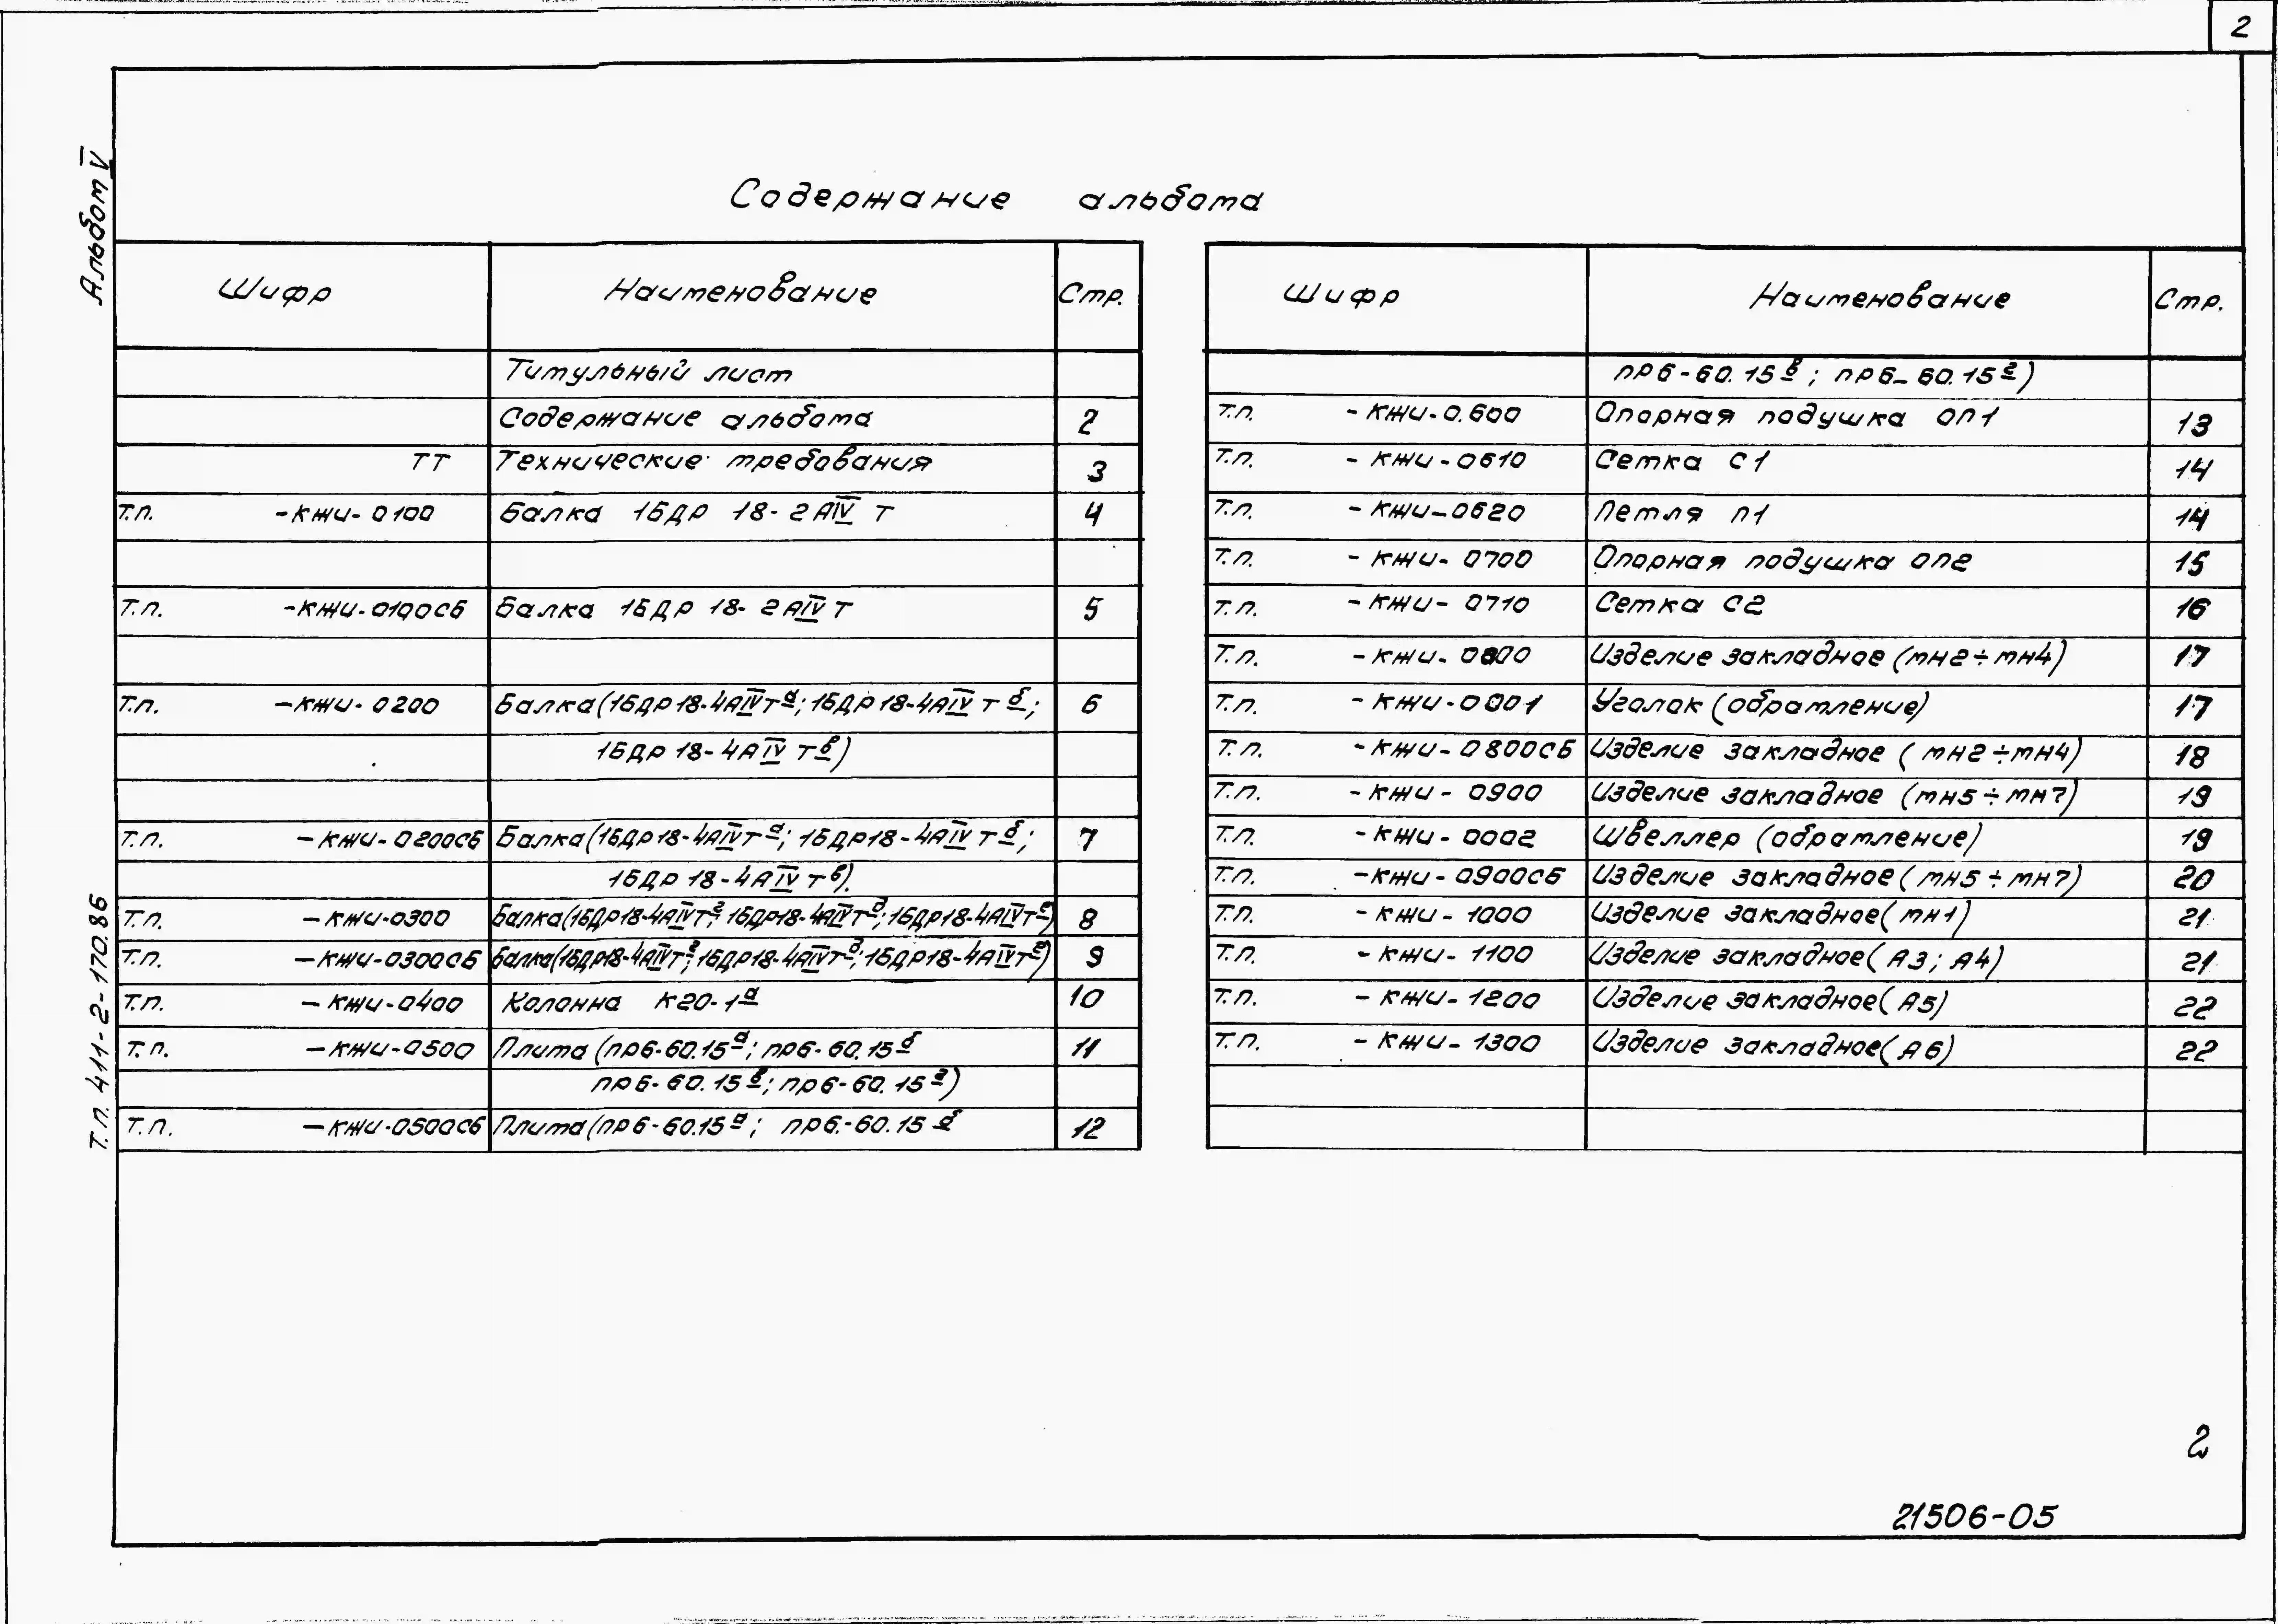 2
Альбом V
Содержание альбома
Шифр Наименование Стр.
Титульный лист
Содержание альбома 2
ТТ Технические требования 3
Т.П. -КЖИ-0100 Балка 1БДР 18-2АIV Т 4
Т.П. -КЖИ-0100СБ Балка 1БДР 18-2АIV Т 5
Т.П. -КЖИ-0200 Балка (1БДР18-4АIVТа; 1БДР18-4АIV Т б;
1БДР 18-4АIV Тв) 6
Т.П. -КЖИ-0200СБ Балка (1БДР18-4АIVТа; 1БДР18-4АIV Т б; 7
1БДР 18-4АIV Тв)
Т.П. -КЖИ-0300 Балка (1БДР18-4АIVТг; 1БДР18-4АIVТд; 1БДР18-4АIVТе) 8
Т.П. -КЖИ-0300СБ Балка (1БДР18-4АIVТг; 1БДР18-4АIVТд; 1БДР18-4АIVТе) 9
Т.П. -КЖИ-0400 Колонна К20-1а 10
Т.П. -КЖИ-0500 Плита (ПР6-60.15а; ПР6-60.15б 11
ПР6-60.15в; ПР6-60.15г)
Т.П. -КЖИ-0500СБ Плита (ПР6-60.15а; ПР6.-60.15 б 12
Шифр Наименование Стр.
ПР6-60.15в; ПР6-60.15г)
Т.П. -КЖИ-0.600 Опорная подушка ОП1 13
Т.П. -КЖИ-0610 Сетка С1 14
Т.П. -КЖИ-0620 Петля П1 14
Т.П. -КЖИ-0700 Опорная подушка ОП2 15
Т.П. -КЖИ-0710 Сетка С2 16
Т.П. -КЖИ-0800 Изделие закладное (МН2÷МН4) 17
Т.П. -КЖИ-0001 Уголок (обрамление) 17
Т.П. -КЖИ-0800СБ Изделие закладное (МН2÷МН4) 18
Т.П. -КЖИ-0900 Изделие закладное (МН5÷МН7) 19
Т.П. -КЖИ-0002 Швеллер (обрамление) 19
Т.П. -КЖИ-0900СБ Изделие закладное (МН5÷МН7) 20
Т.П. -КЖИ-1000 Изделие закладное (МН1) 21
Т.П. -КЖИ-1100 Изделие закладное (А3; А4) 21
Т.П. -КЖИ-1200 Изделие закладное (А5) 22
Т.П. -КЖИ-1300 Изделие закладное (А6) 22
Т.П. 411-2-170.86
2
21506-05